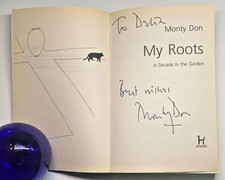 To Delia
Monty Don
My Roots
A Decade in the Garden
Best wishes
Monty Don